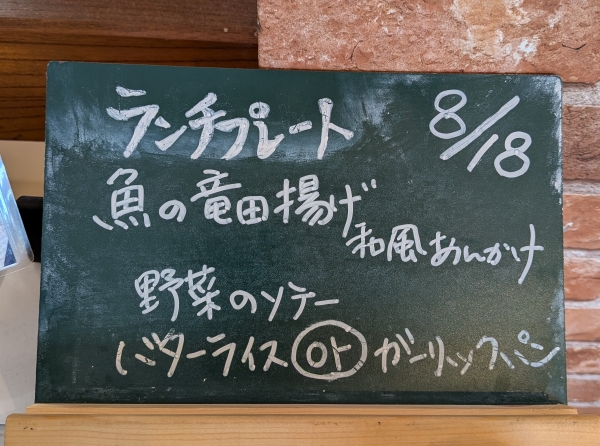 ランチプレート 8/18
魚の竜田揚げ
和風あんかけ
野菜のソテー
バターライス or ガーリックパン